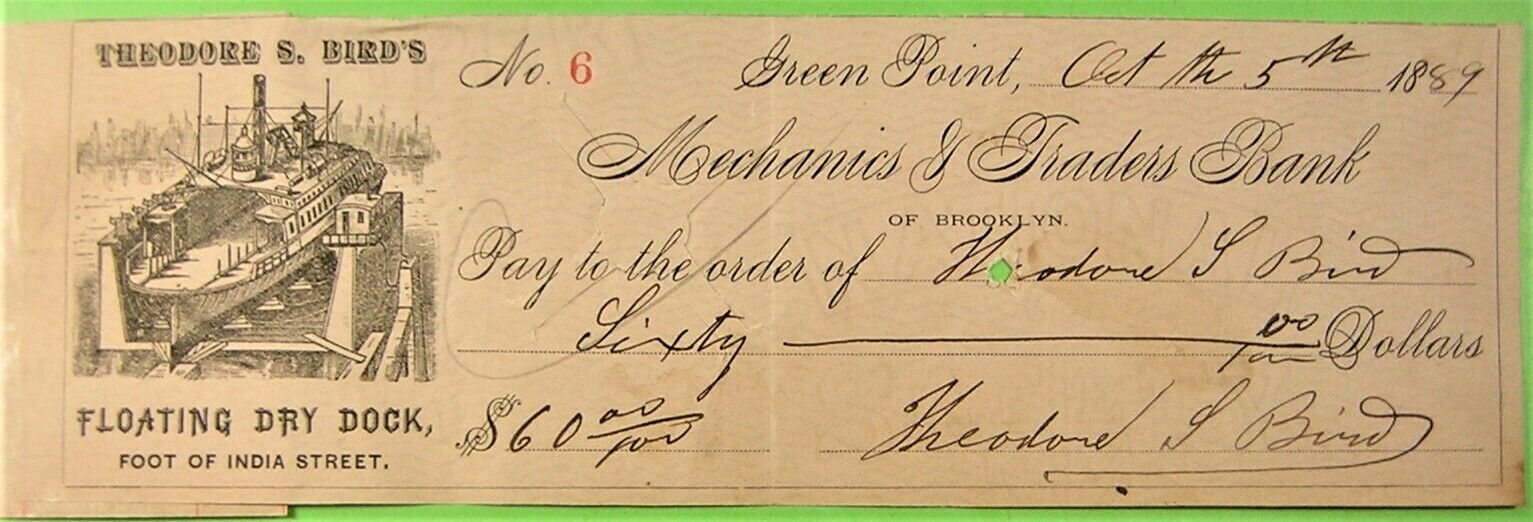 THEODORE S. BIRD'S
FLOATING DRY DOCK,
FOOT OF INDIA STREET.
No. 6
Green Point, Oct th 5th 1889
Mechanics & Traders Bank
OF BROOKLYN.
Pay to the order of Theodore S Bird
Sixty 00/100 Dollars
$60 00/100
Theodore S Bird